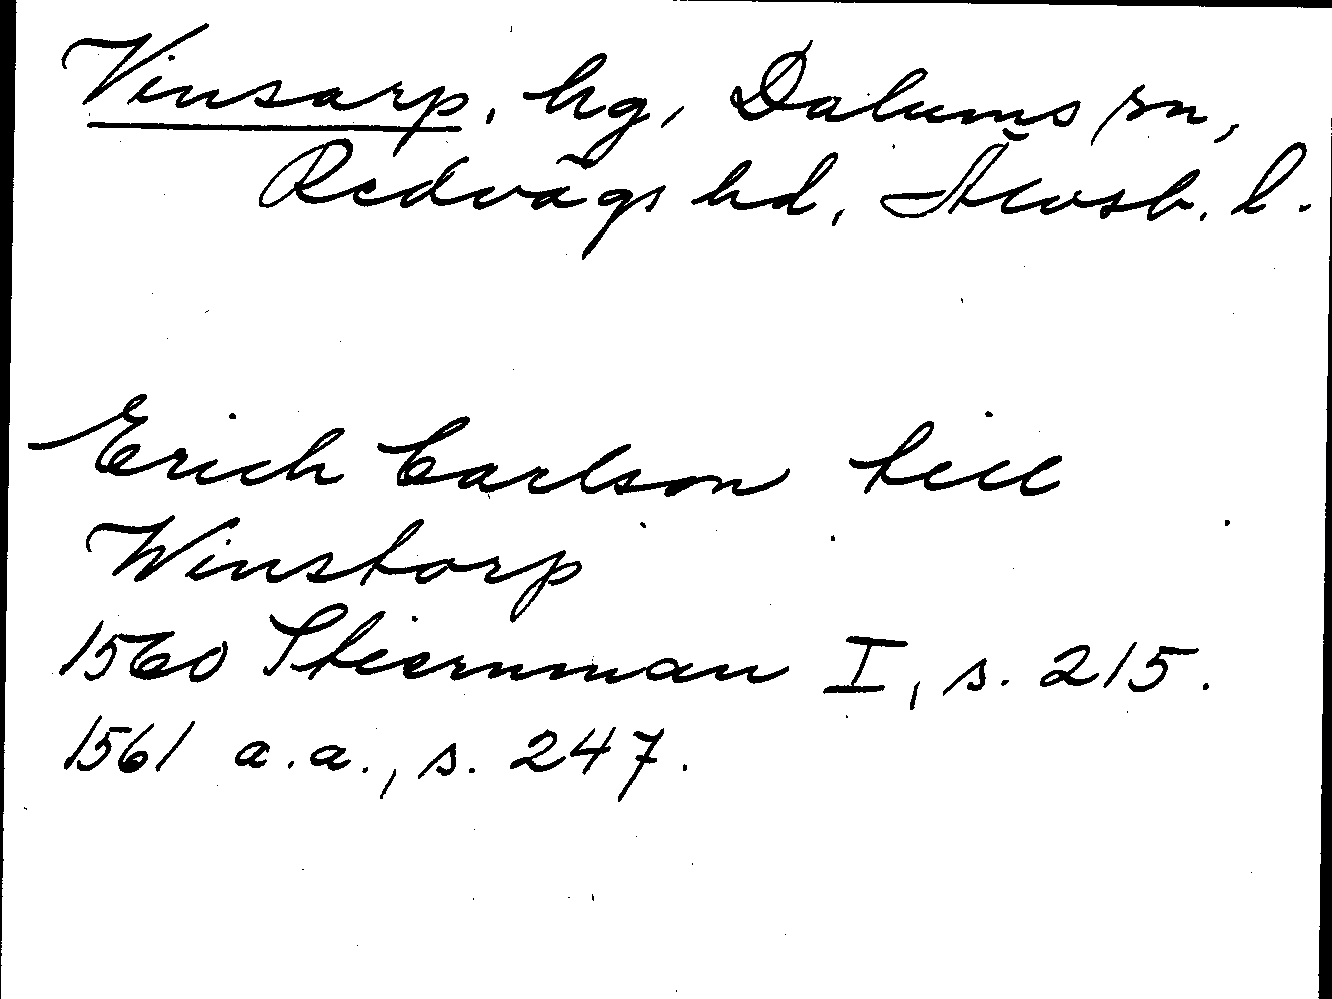 Vinsarp, hg, Dalums sn,
Redvägs hd, Älvsb. l.
Erich Carlson till
Winstorp
1560 Stiernman I, s. 215.
1561 a.a., s. 247.